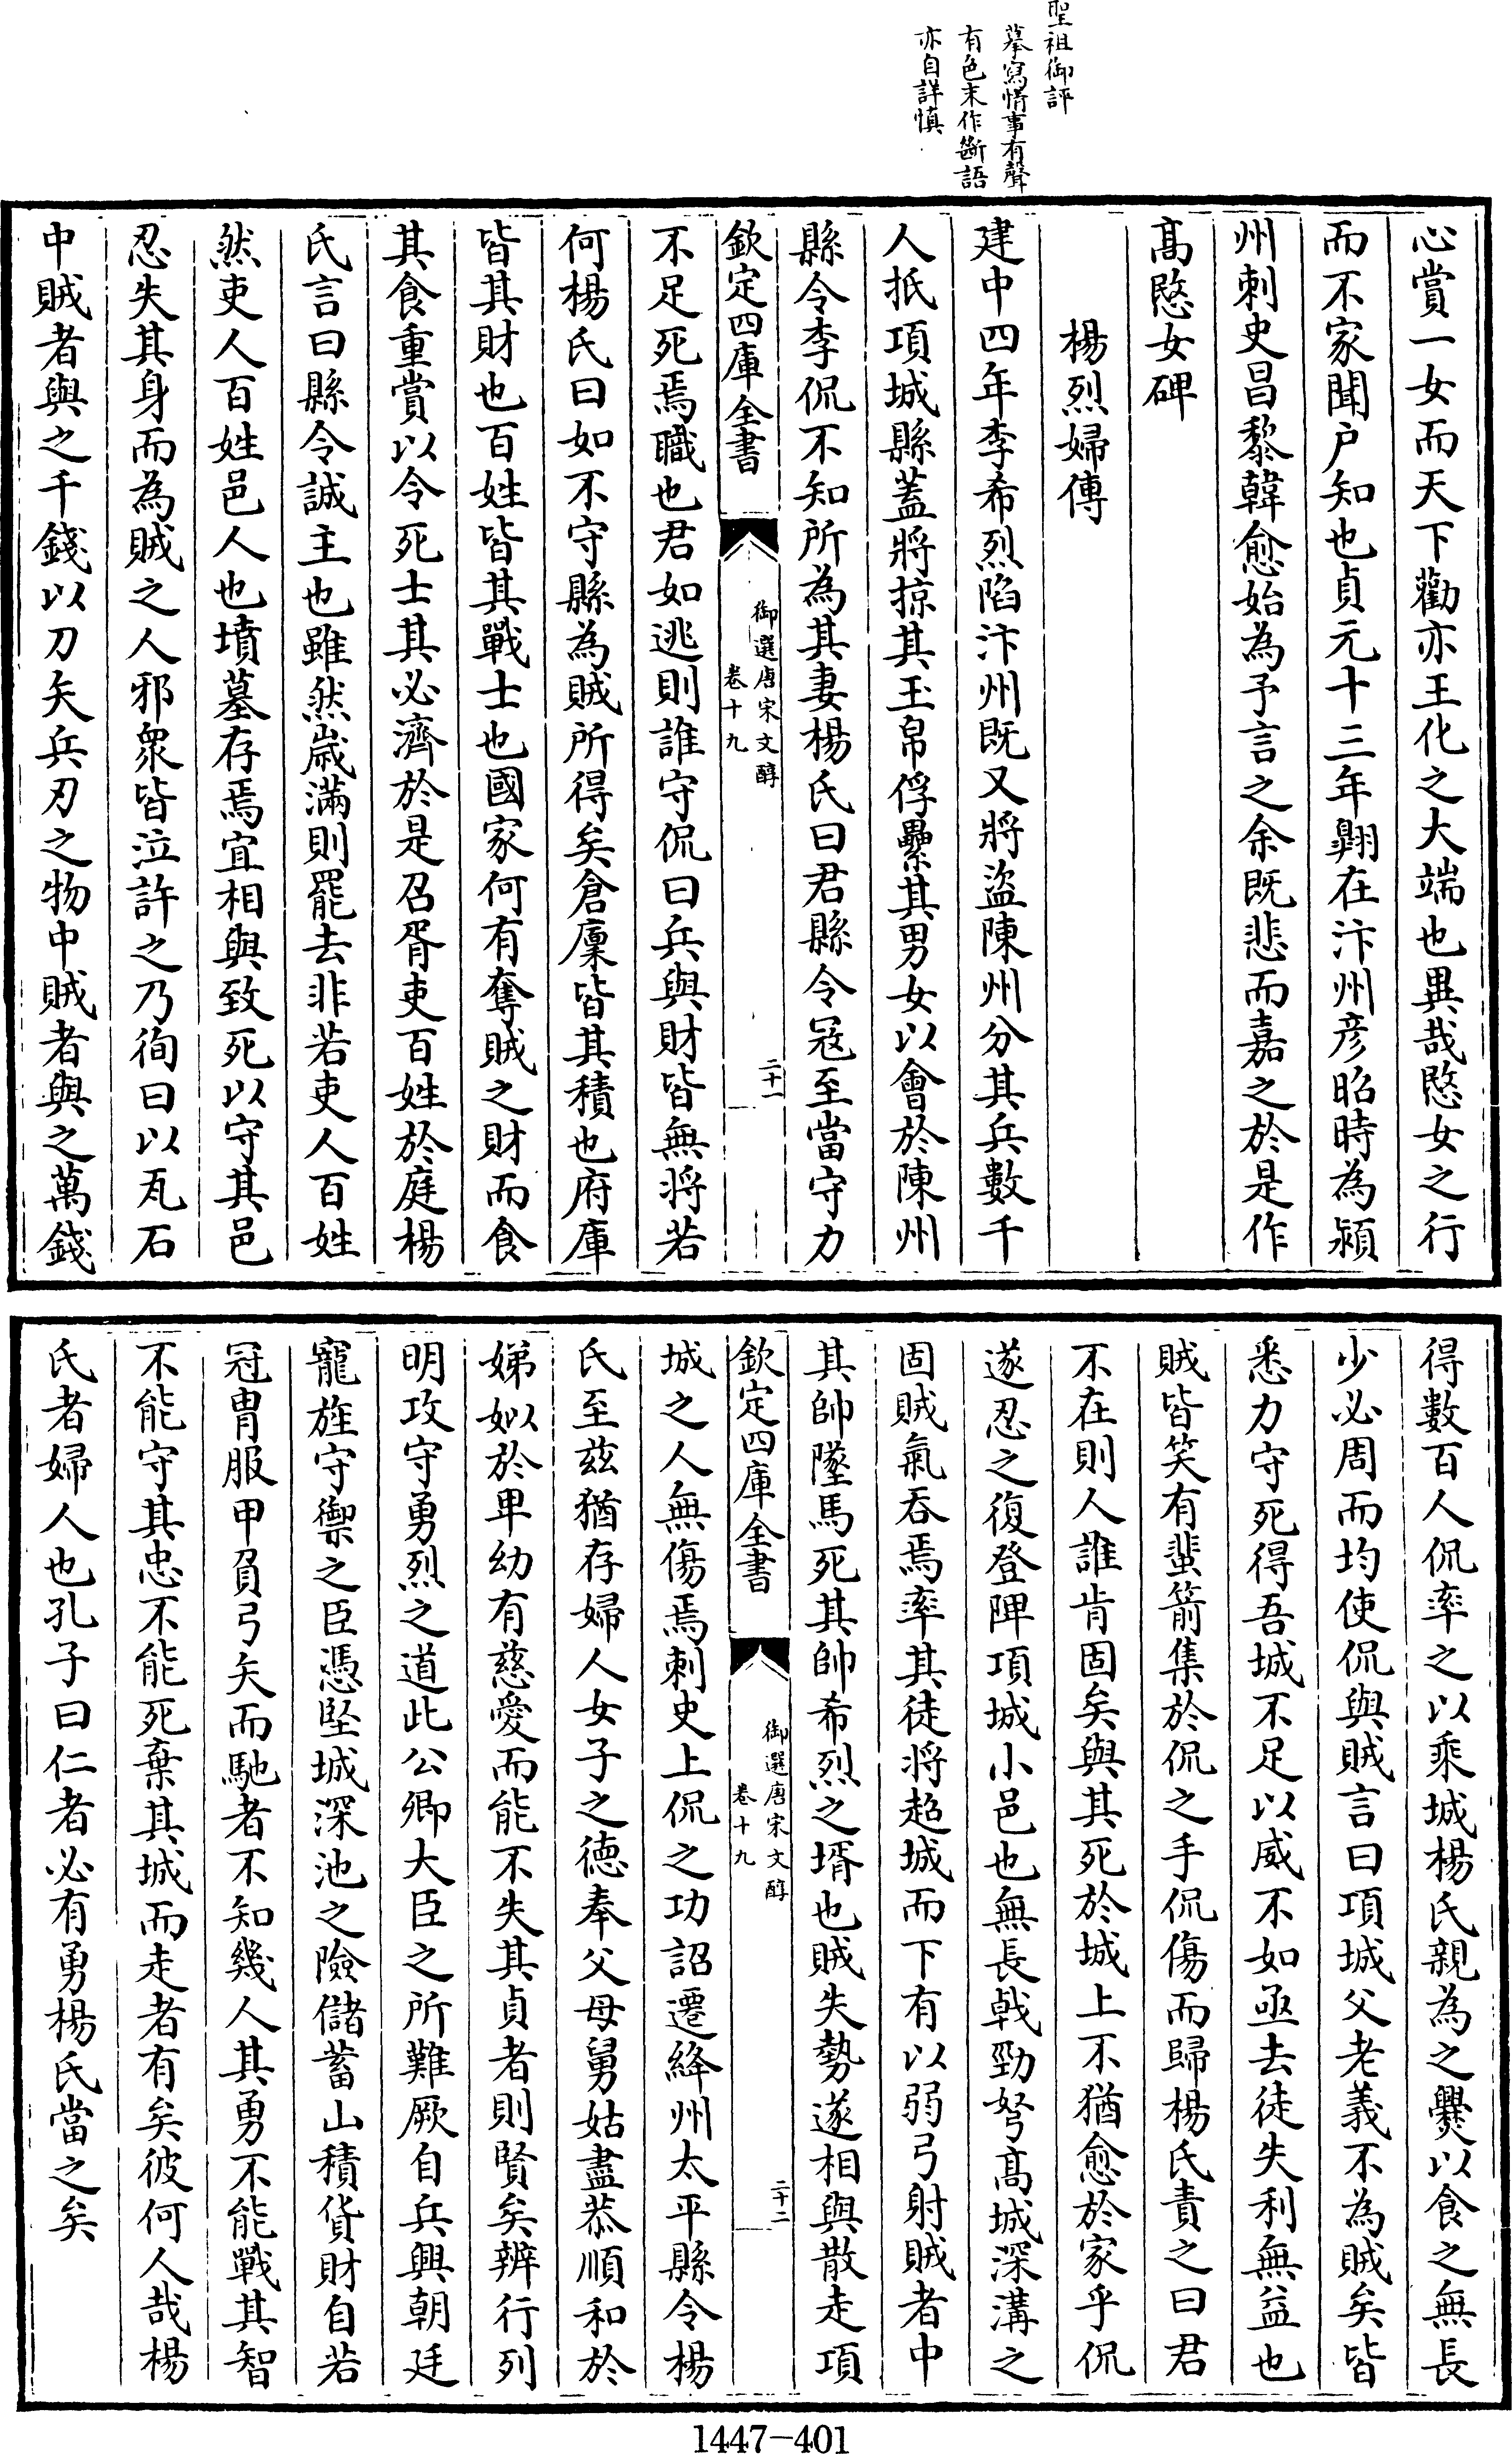 聖祖御評
摹寫情事有聲
有色末作斷語
亦自詳慎
心賞一女而天下勸亦王化之大端也異哉愍女之行
而不家聞户知也貞元十三年翺在汴州彦昭時為潁
州刺史昌黎韓愈始為予言之余既悲而嘉之於是作
髙愍女碑
楊烈婦傳
建中四年李希烈陷汴州既又將盗陳州分其兵數千
人抵項城縣蓋將掠其玉帛俘纍其男女以會於陳州
縣令李侃不知所為其妻楊氏曰君縣令冦至當守力
欽定四庫全書
御選唐宋文醇
卷十九
二十一
不足死焉職也君如逃則誰守侃曰兵與財皆無將若
何楊氏曰如不守縣為賊所得矣倉廩皆其積也府庫
皆其財也百姓皆其戰士也國家何有奪賊之財而食
其食重賞以令死士其必濟於是召胥吏百姓於庭楊
氏言曰縣令誠主也雖然嵗滿則罷去非若吏人百姓
然吏人百姓邑人也墳墓存焉宜相與致死以守其邑
忍失其身而為賊之人邪衆皆泣許之乃徇曰以瓦石
中賊者與之千錢以刀矢兵刃之物中賊者與之萬錢
得數百人侃率之以乘城楊氏親為之爨以食之無長
少必周而均使侃與賊言曰項城父老義不為賊矣皆
悉力守死得吾城不足以威不如亟去徒失利無益也
賊皆笑有蜚箭集於侃之手侃傷而歸楊氏責之曰君
不在則人誰肯固矣與其死於城上不猶愈於家乎侃
遂忍之復登陴項城小邑也無長戟勁弩髙城深溝之
固賊氣吞焉率其徒將超城而下有以弱弓射賊者中
其帥墜馬死其帥希烈之壻也賊失勢遂相與散走項
欽定四庫全書
御選唐宋文醇
卷十九
二十二
城之人無傷焉刺史上侃之功詔遷絳州太平縣令楊
氏至兹猶存婦人女子之德奉父母舅姑盡恭順和於
娣姒於卑幼有慈愛而能不失其貞者則賢矣辨行列
明攻守勇烈之道此公卿大臣之所難厥自兵興朝廷
寵旌守禦之臣憑堅城深池之險儲蓄山積貨財自若
冠胄服甲負弓矢而馳者不知幾人其勇不能戰其智
不能守其忠不能死棄其城而走者有矣彼何人哉楊
氏者婦人也孔子曰仁者必有勇楊氏當之矣
1447-401